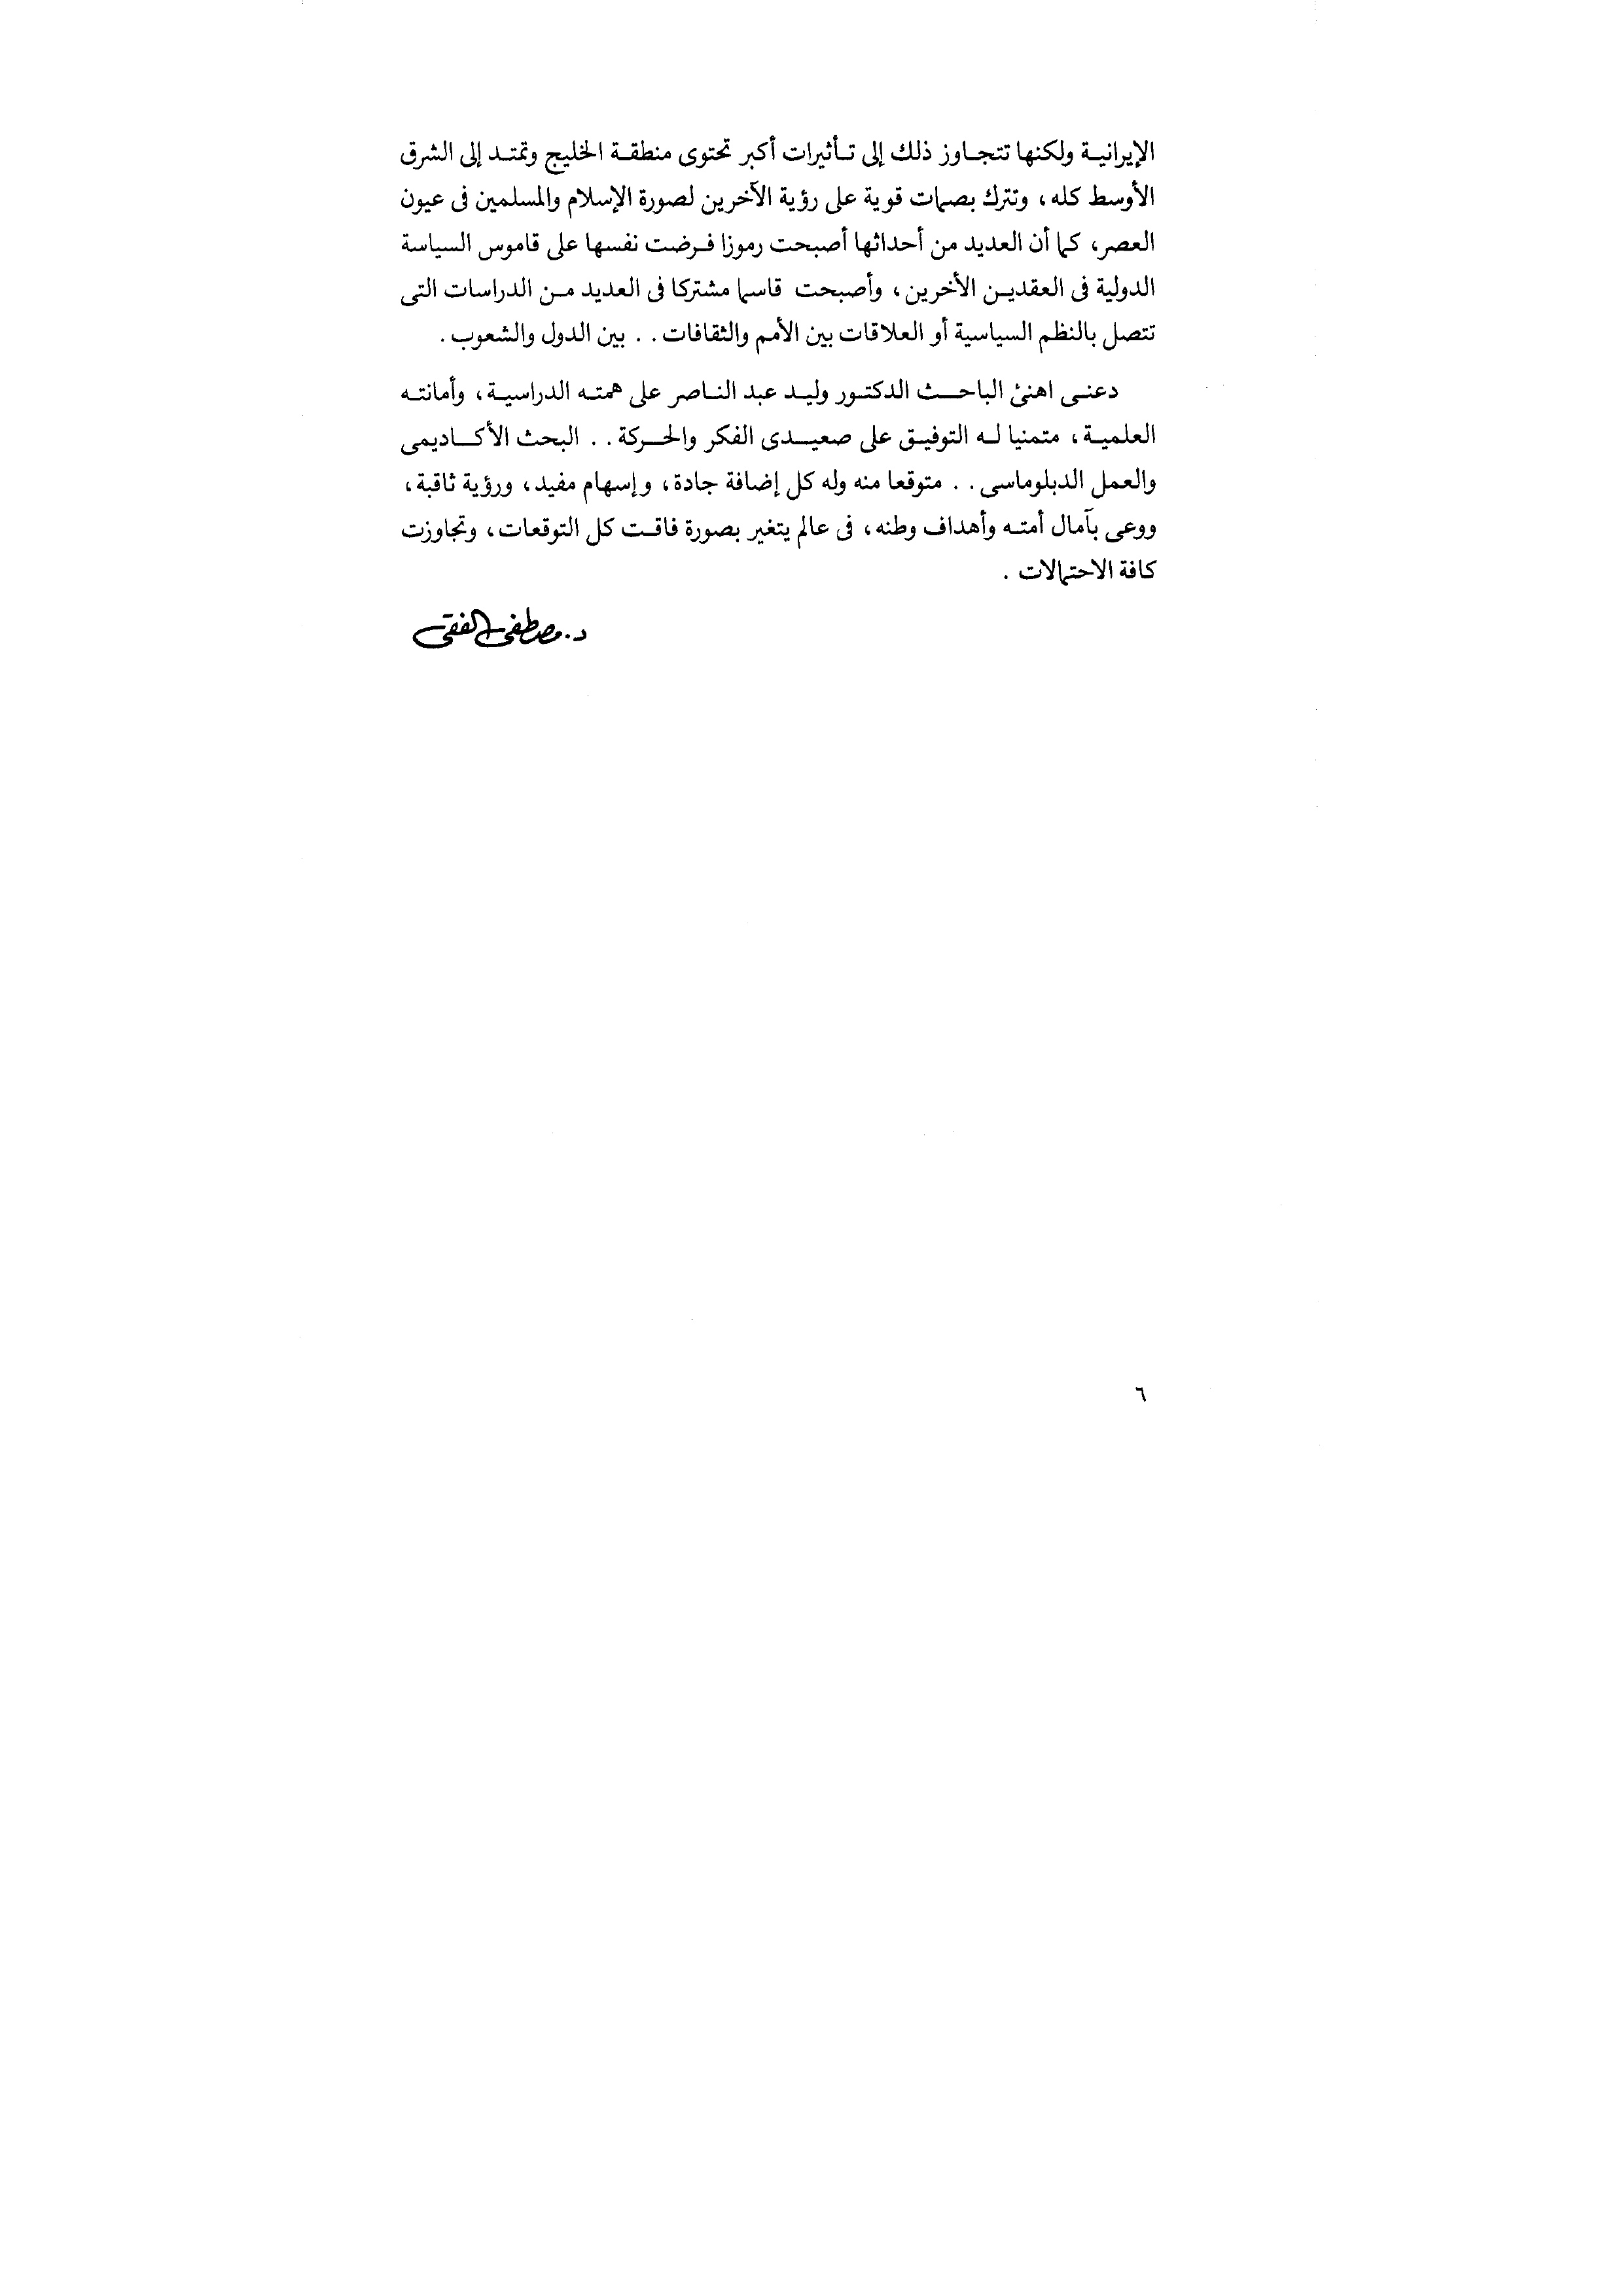 الإيرانية ولكنها تتجاوز ذلك إلى تأثيرات أكبر تحتوى منطقة الخليج وتمتد إلى الشرق
الأوسط كله، وتترك بصمات قوية على رؤية الآخرين لصورة الإسلام والمسلمين فى عيون
العصر، كما أن العديد من أحداثها أصبحت رموزا فرضت نفسها على قاموس السياسة
الدولية فى العقدين الأخرين، وأصبحت قاسما مشتركا فى العديد من الدراسات التى
تتصل بالنظم السياسية أو العلاقات بين الأمم والثقافات . . بين الدول والشعوب .
دعنى اهنئ الباحث الدكتور وليد عبد الناصر على همته الدراسية، وأمانته
العلمية، متمنيا له التوفيق على صعيدى الفكر والحركة . . البحث الأكاديمى
والعمل الدبلوماسى . . متوقعا منه وله كل إضافة جادة، وإسهام مفيد، ورؤية ثاقبة،
ووعى بآمال أمته وأهداف وطنه، فى عالم يتغير بصورة فاقت كل التوقعات، وتجاوزت
كافة الاحتمالات .
د. مصطفى الفقى
٦